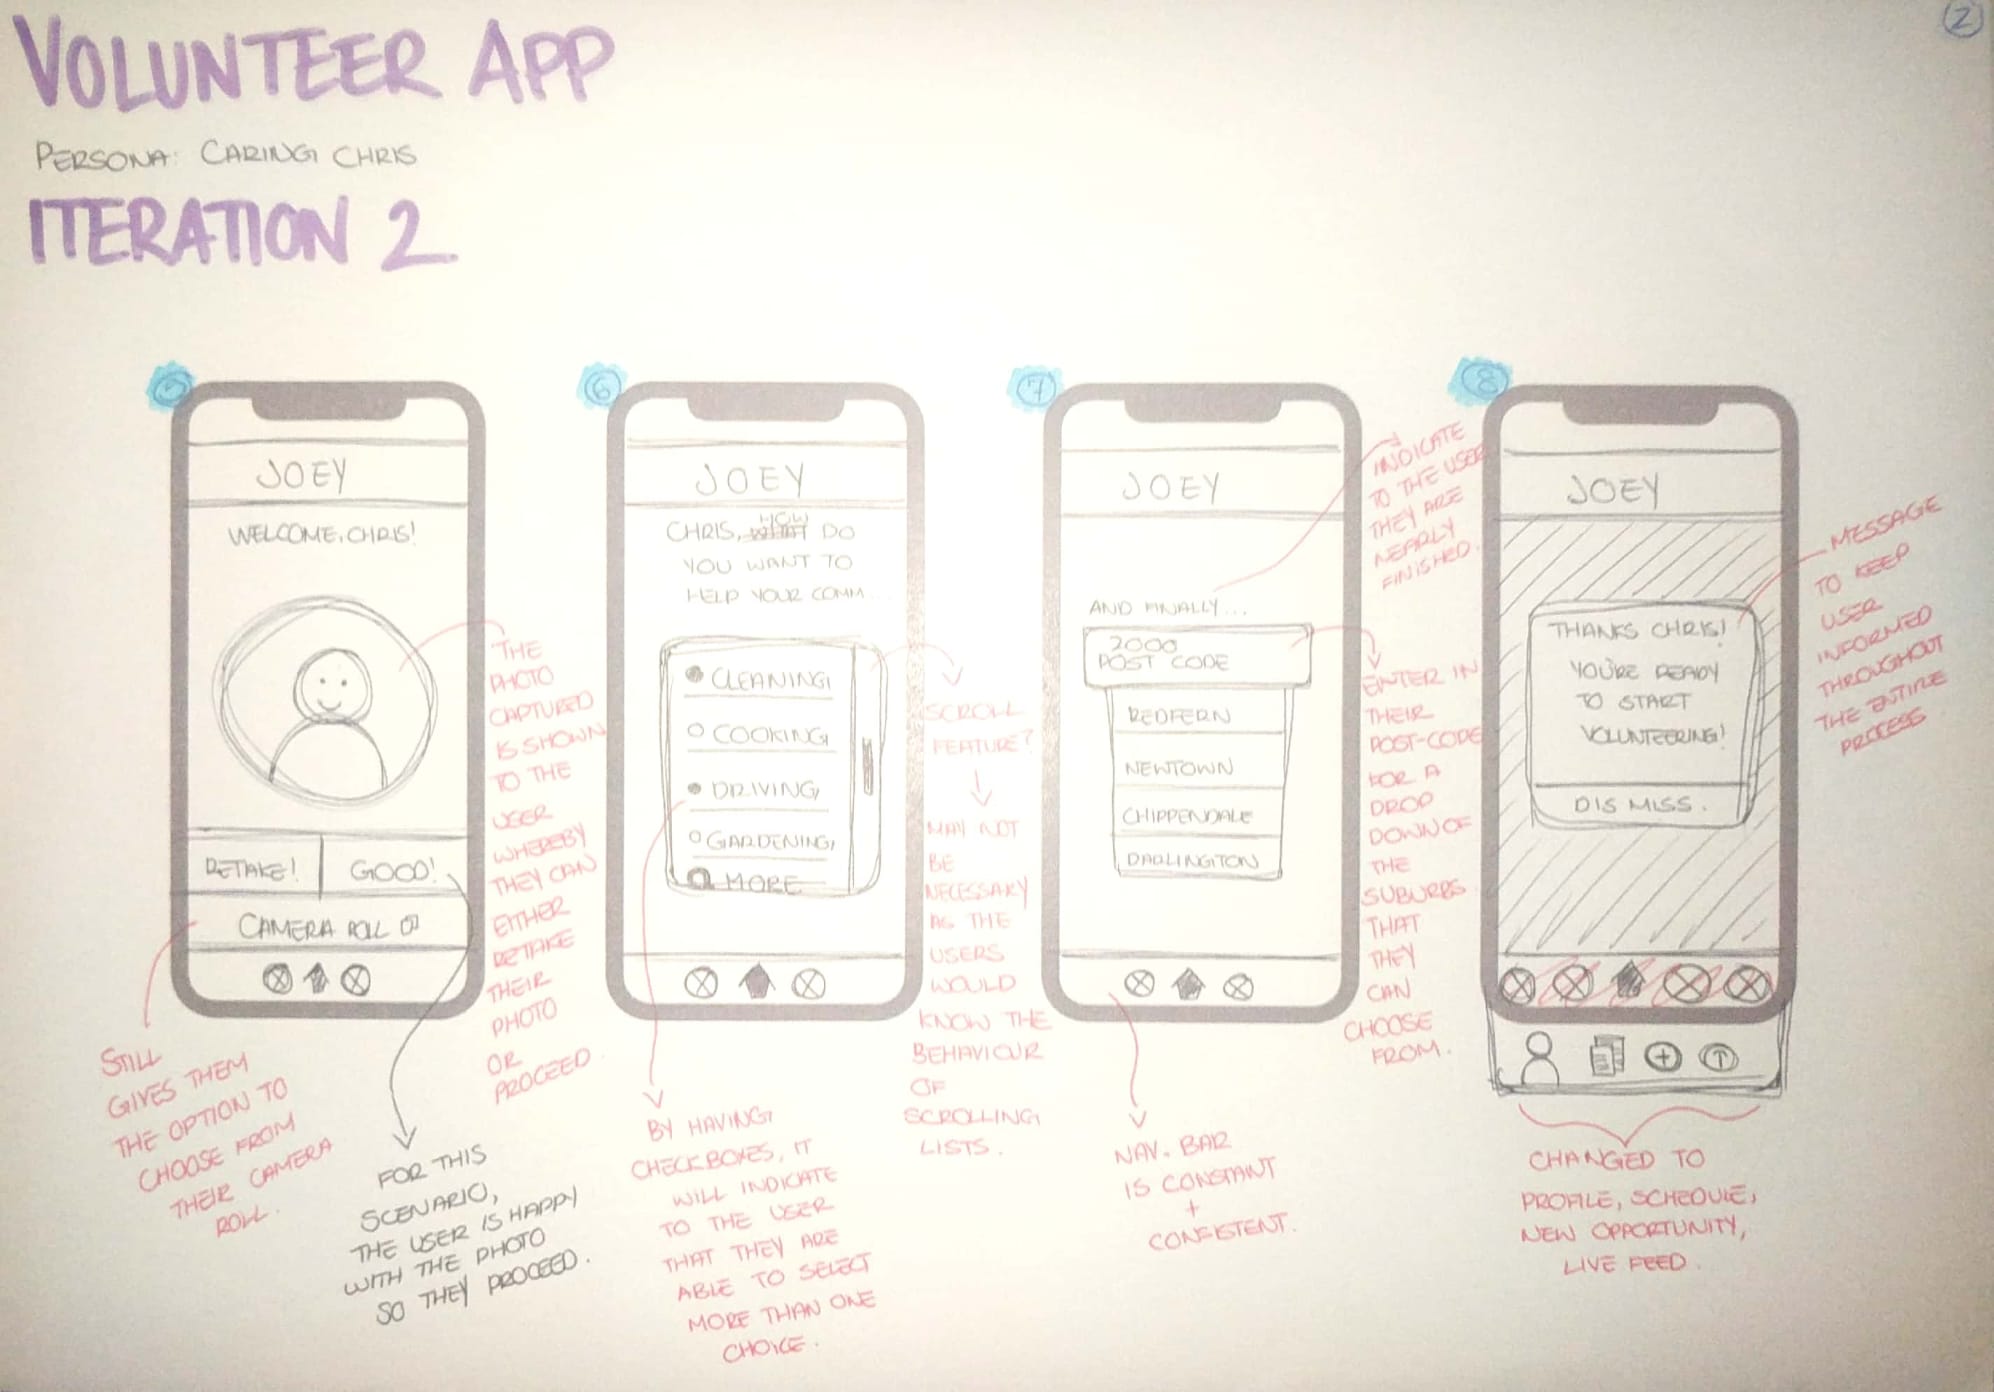 2
VOLUNTEER APP
PERSONA: CARING CHRIS
ITERATION 2
5
JOEY
WELCOME, CHRIS!
RETAKE!
GOOD!
CAMERA ROLL
THE
PHOTO
CAPTURED
IS SHOWN
TO THE
USER
WHEREBY
THEY CAN
EITHER
RETAKE
THEIR
PHOTO
OR
PROCEED.
STILL
GIVES THEM
THE OPTION TO
CHOOSE FROM
THEIR CAMERA
ROLL.
FOR THIS
SCENARIO,
THE USER IS HAPPY
WITH THE PHOTO
SO THEY PROCEED.
6
JOEY
HOW
CHRIS, WHAT DO
YOU WANT TO
HELP YOUR COMM...
CLEANING
COOKING
DRIVING
GARDENING
MORE
SCROLL
FEATURE?
MAY NOT
BE
NECESSARY
AS THE
USERS
WOULD
KNOW THE
BEHAVIOUR
OF
SCROLLING
LISTS.
BY HAVING
CHECKBOXES, IT
WILL INDICATE
TO THE USER
THAT THEY ARE
ABLE TO SELECT
MORE THAN ONE
CHOICE.
7
JOEY
AND FINALLY...
2000
POST CODE
REDFERN
NEWTOWN
CHIPPENDALE
DARLINGTON
INDICATE
TO THE USER
THEY ARE
NEARLY
FINISHED.
ENTER IN
THEIR
POST-CODE
FOR A
DROP
DOWN OF
THE
SUBURBS
THAT
THEY
CAN
CHOOSE
FROM.
NAV. BAR
IS CONSTANT
+
CONSISTENT.
8
JOEY
THANKS CHRIS!
YOU'RE READY
TO START
VOLUNTEERING!
DISMISS.
MESSAGE
TO KEEP
USER
INFORMED
THROUGHOUT
THE ENTIRE
PROCESS
CHANGED TO
PROFILE, SCHEDULE,
NEW OPPORTUNITY,
LIVE FEED.